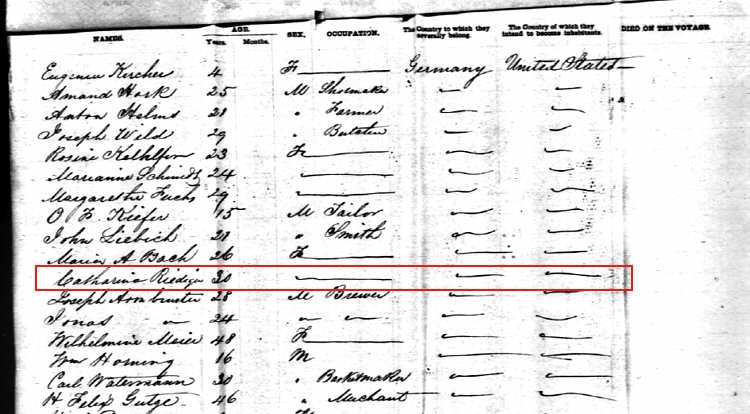 NAMES. AGE. Years. Months. SEX. OCCUPATION. The Country to which they severally belong. The Country of which they intend to become inhabitants. DIED ON THE VOYAGE.
Eugenia Kircher 4 F Germany United States
Amand Hark 25 M Shoemaker
Aaron Helms 21 " Farmer
Joseph Wild 29 "
Rosine 23 F
Marianne Schmidt 24
Margarethe Fuchs 29
O F. Kiefer 15 M Tailor
John Liebich 28 " Smith
Maria A Bach 26 F
Catharina Riediger 30
Joseph Armbruster 28 M Brewer
Jonas " 24 " "
Wilhelmine Maier 48 F
Wm Horning 16 M
Carl Watermann 30 " Basketmaker
H Felix Gutge 46 " Merchant